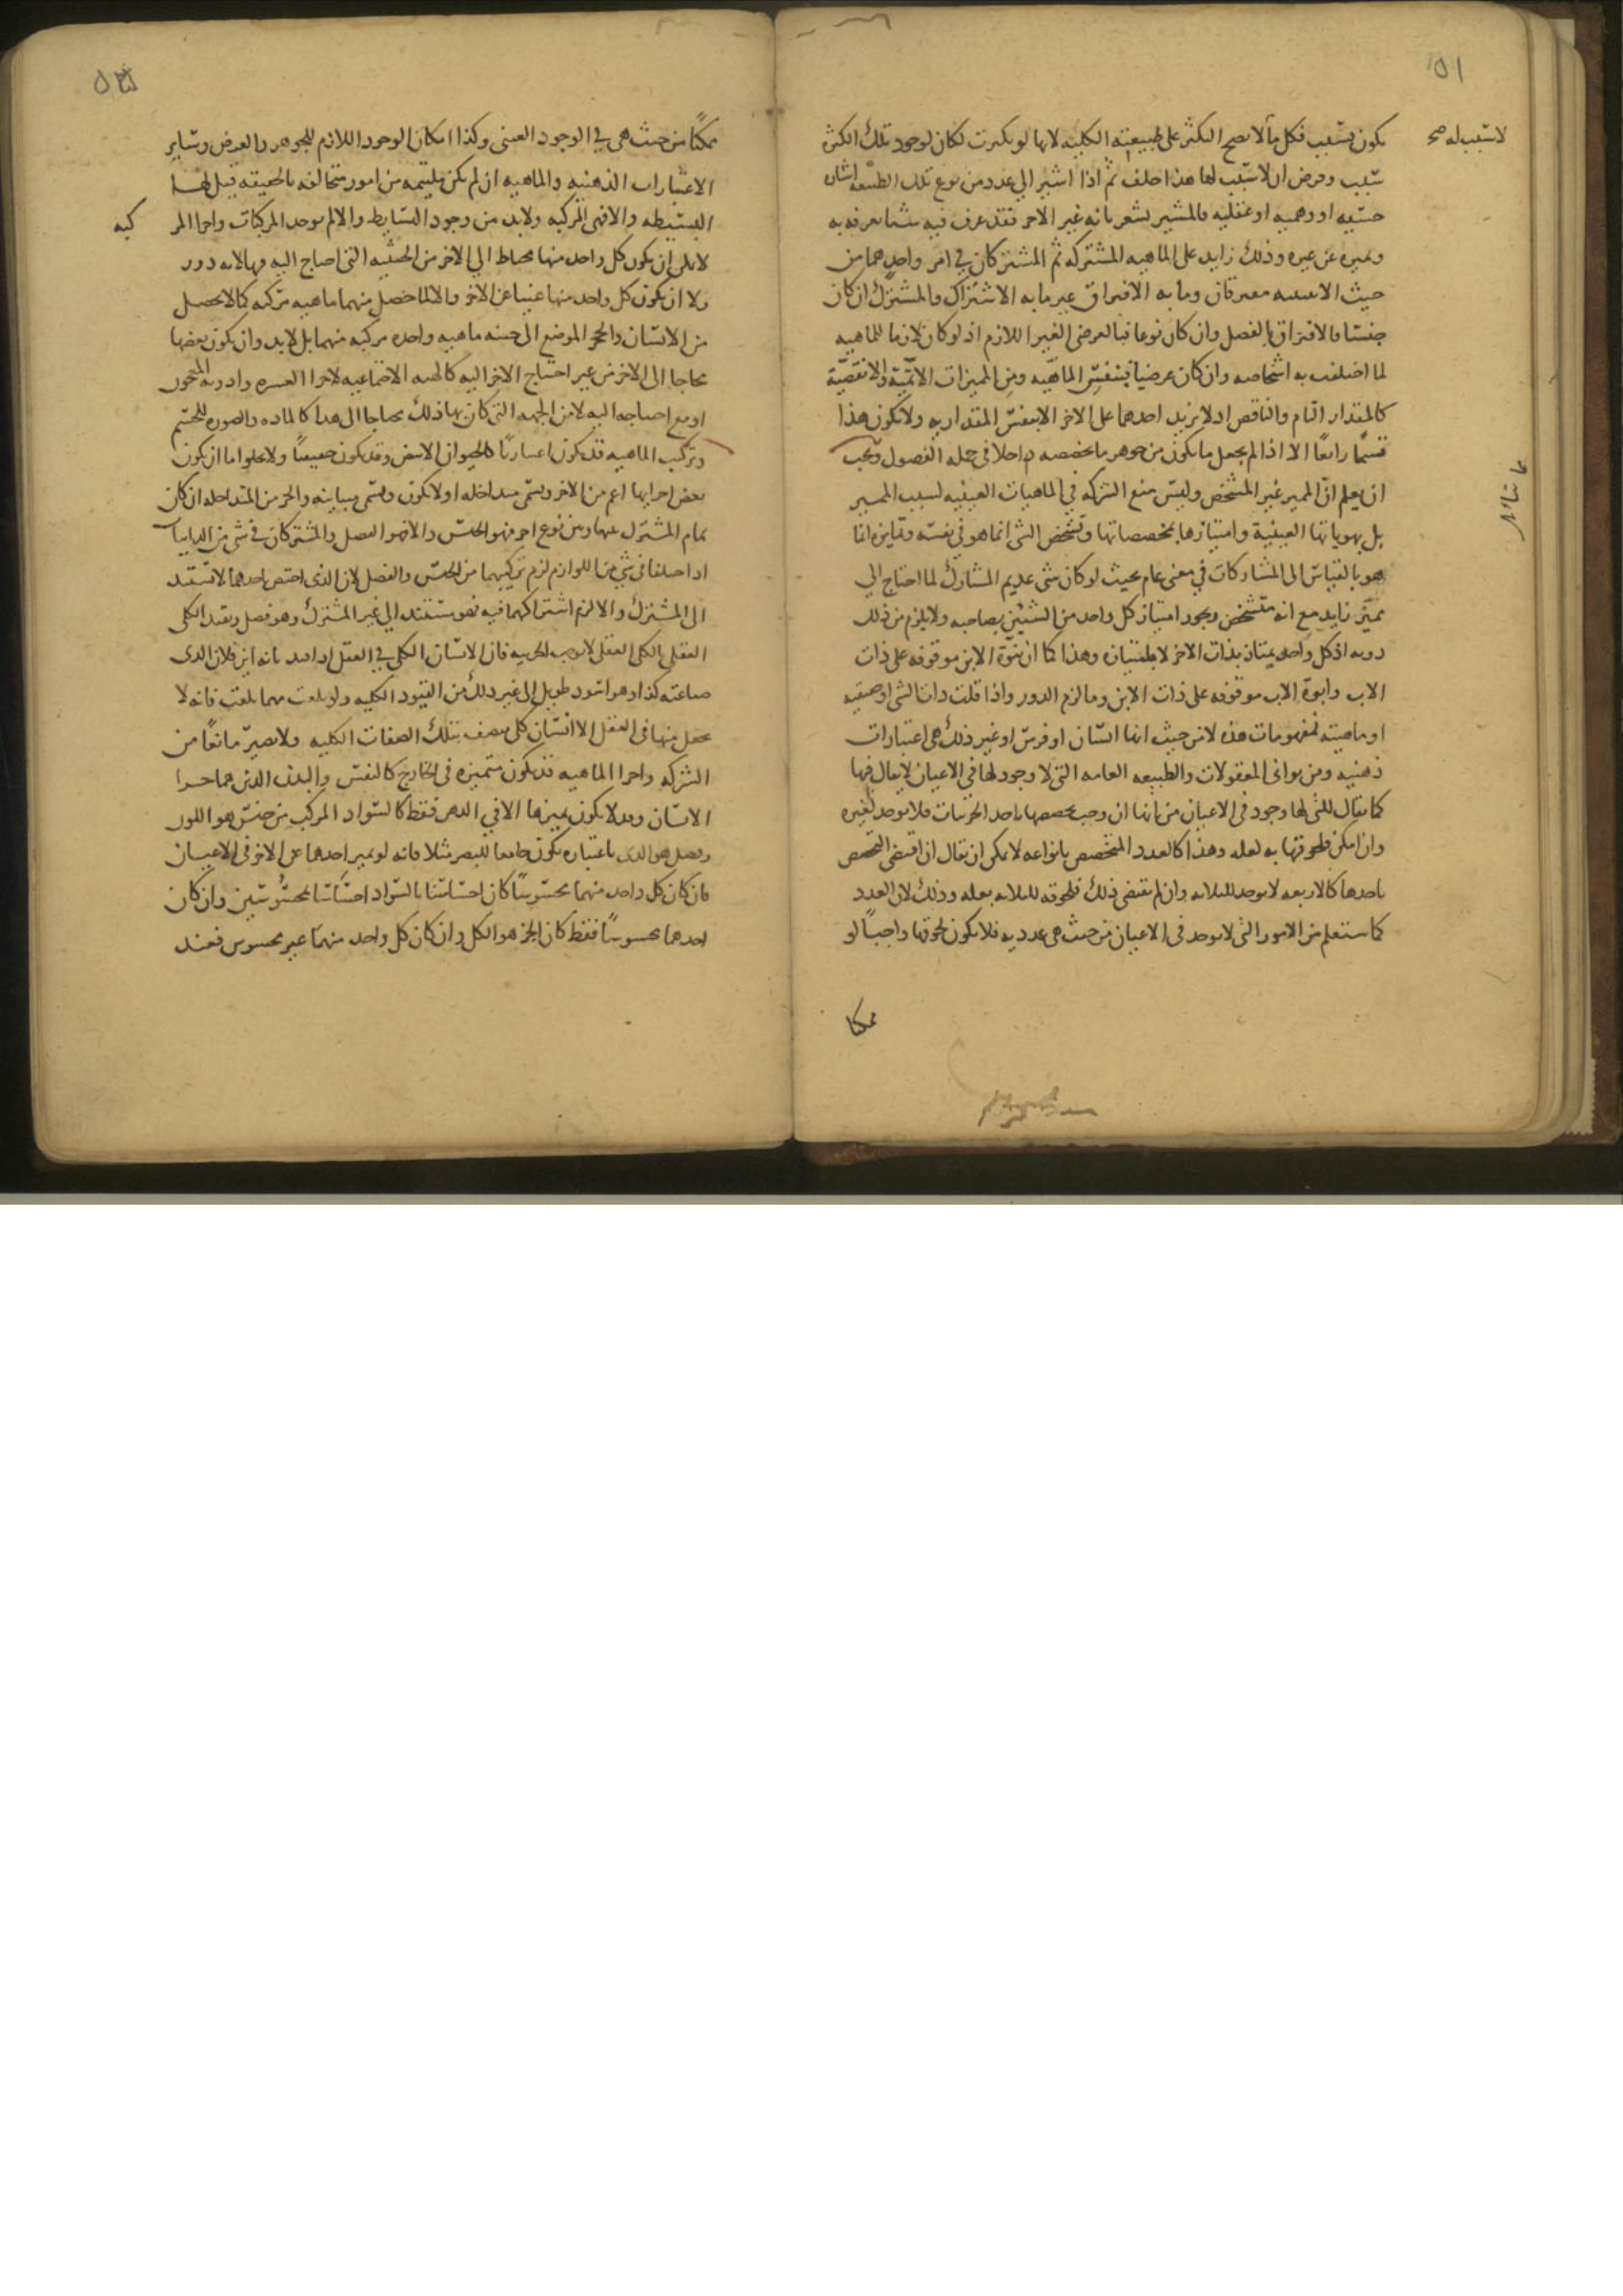 ٥١
لا سبب له صح
يكون بسبب فكل ما لا يصح التكثر على طبيعته الكلية لانها لو تكثرت لكان لوجود تلك الكثرة
سبب وفرض ان لا سبب لها هذا خلف ثم اذا اشير الى عدد من نوع تلك الطبيعة اشارة
حسيه او وهميه او عقليه فالمشير يشعر بانه غير الاخر فقد عرف فيه شيئا يعرفه به
ويميزه عن غيره وذلك زايد على الماهيه المشتركه ثم المشتركان في امر واحد هما من
حيث الاثنينيه مفترقان وما به الافتراق غير ما به الاشتراك والمشترك ان كان
جنسا فالافتراق بالفصل وان كان نوعا فبالعرضى الغير اللازم اذ لو كان لازما للماهيه
لما اختلفت به اشخاصه وان كان عرضيا فبنفس الماهيه ومن المميزات الاتمية والانقصية
كالمقدار التام والناقص اذ لا يزيد احدهما على الاخر الا بنفس المقداريه ولا يكون هذا
قسما رابعا الا اذا لم يجعل ما يكون من جوهر ما يخصصه داخلا فى جمله الفصول ويجب
ان يعلم ان المميز غير المشخص وليس منع الشركه في الماهيات العينيه لسبب المميز
بل بهوياتها العينية وامتيازها بمخصصاتها وتشخص الشى انما هو فى نفسه وتمايزه انما
هو بالقياس الى المشاركات في معنى عام بحيث لو كان شى عديم المشارك لما احتاج الى
مميز زايد مع انه متشخص ويجوز امتياز كل واحد من الشيئين بصاحبه ولا يلزم من ذلك
دور اذ كل واحد يمتاز بذات الاخر لا بامتيازه وهذا كما ان بنوة الابن موقوفه على ذات
الاب وابوة الاب موقوفه على ذات الابن وما لزم الدور واذا قلت ذات الشى او حقيقته
او ماهيته فمفهومات هذه لا من حيث انها انسان او فرس او غير ذلك هى اعتبارات
ذهنيه ومن ثوانى المعقولات والطبيعه العامه التى لا وجود لها فى الاعيان لا يقال فيها
كما يقال للتى لها وجود فى الاعيان من انها ان وجب تخصصها باحد الجزئيات فلا يوجد لغيره
وان امكن فلحوقها به لعله وهذا كالعدد المتخصص بانواعه لا يمكن ان يقال ان اقتضى التخصص
باحدها كالاربعه لا يوجد للثلاثه وان لم يقتض ذلك فلحوقه للثلاثه بعله وذلك لان العدد
كما ستعلم من الامور التى لا توجد فى الاعيان من حيث هى عدديه فلا يكون لحوقها واجبا لو
ممكنا
ممكنا من حيث هى في الوجود العينى وكذا امكان الوجود اللازم للجوهر والعرض وساير
الاعتبارات الذهنيه والماهيه ان لم تكن ملتئمه من امور متخالفه بالحقيقه قيل لها
البسيطه والا فهى المركبه ولا بد من وجود البسايط والا لم توجد المركبات واجزا المر
كبه
لا يمكن ان يكون كل واحد منها محتاجا الى الاخر من الحيثيه التى احتاج اليه فيها لانه دور
ولا ان يكون كل واحد منها غنيا عن الاخر والا لما حصل منهما ماهيه مركبه كما لا يحصل
من الانسان والحجر الموضوع الى جنبه ماهيه واحده مركبه منهما بل لا بد وان يكون بعضها
محتاجا الى الاخر من غير احتياج الاخر اليه كالهيئه الاجتماعيه لاجزا العشره وادويه المعجون
او مع احتياجه اليه لا من الجهه التى كان بها ذلك محتاجا الى هذا كالماده والصوره للجسم
وتركب الماهيه قد يكون اعتباريا كالحيوان الابيض وقد يكون حقيقيا ولا يخلوا اما ان يكون
بعض اجزايها اعم من الاخر وتسمى متداخله او لا يكون وتسمى متباينه والجز من المتداخله ان كان
تمام المشترك بينها وبين نوع اخر فهو الجنس والا فهو الفصل والمشتركان فى شى من الذاتيات
اذا اختلفا فى شي من اللوازم لزم تركيبهما من الجنس والفصل لان الذى اختص احدهما لا تستند
الى المشترك والا لزم اشتراكهما فيه فهو مستند الى غير المشترك وهو فصل وتقيد الكلى
العقلى بالكلى العقلى لا يوجب الجزئيه فان الانسان الكلى في العقل اذا قيد بانه ابن فلان الذى
صناعته كذا وهو اسود طويل الى غير ذلك من القيود الكليه ولو بلغت مهما بلغت فانه لا
يحصل منها فى العقل الا انسان كلى متصف بتلك الصفات الكليه ولا يصير مانعا من
الشركه واجزا الماهيه قد يكون متميزه فى الخارج كالنفس والبدن الذين هما جزا
الانسان وقد لا يكون تميزها الا في الذهن فقط كالسواد المركب من جنس هو اللون
وفصل هو الذى باعتباره يكون جامعا للبصر مثلا فانه لو تميز احدهما عن الاخر فى الاعيان
فان كان كل واحد منهما محسوسا كان احساسنا بالسواد احساسا بمحسوسين وان كان
احدهما محسوسا فقط كان الجز هو الكل وان كان كل واحد منهما غير محسوس فعند